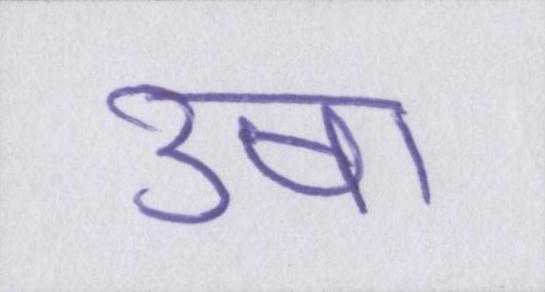 उषा